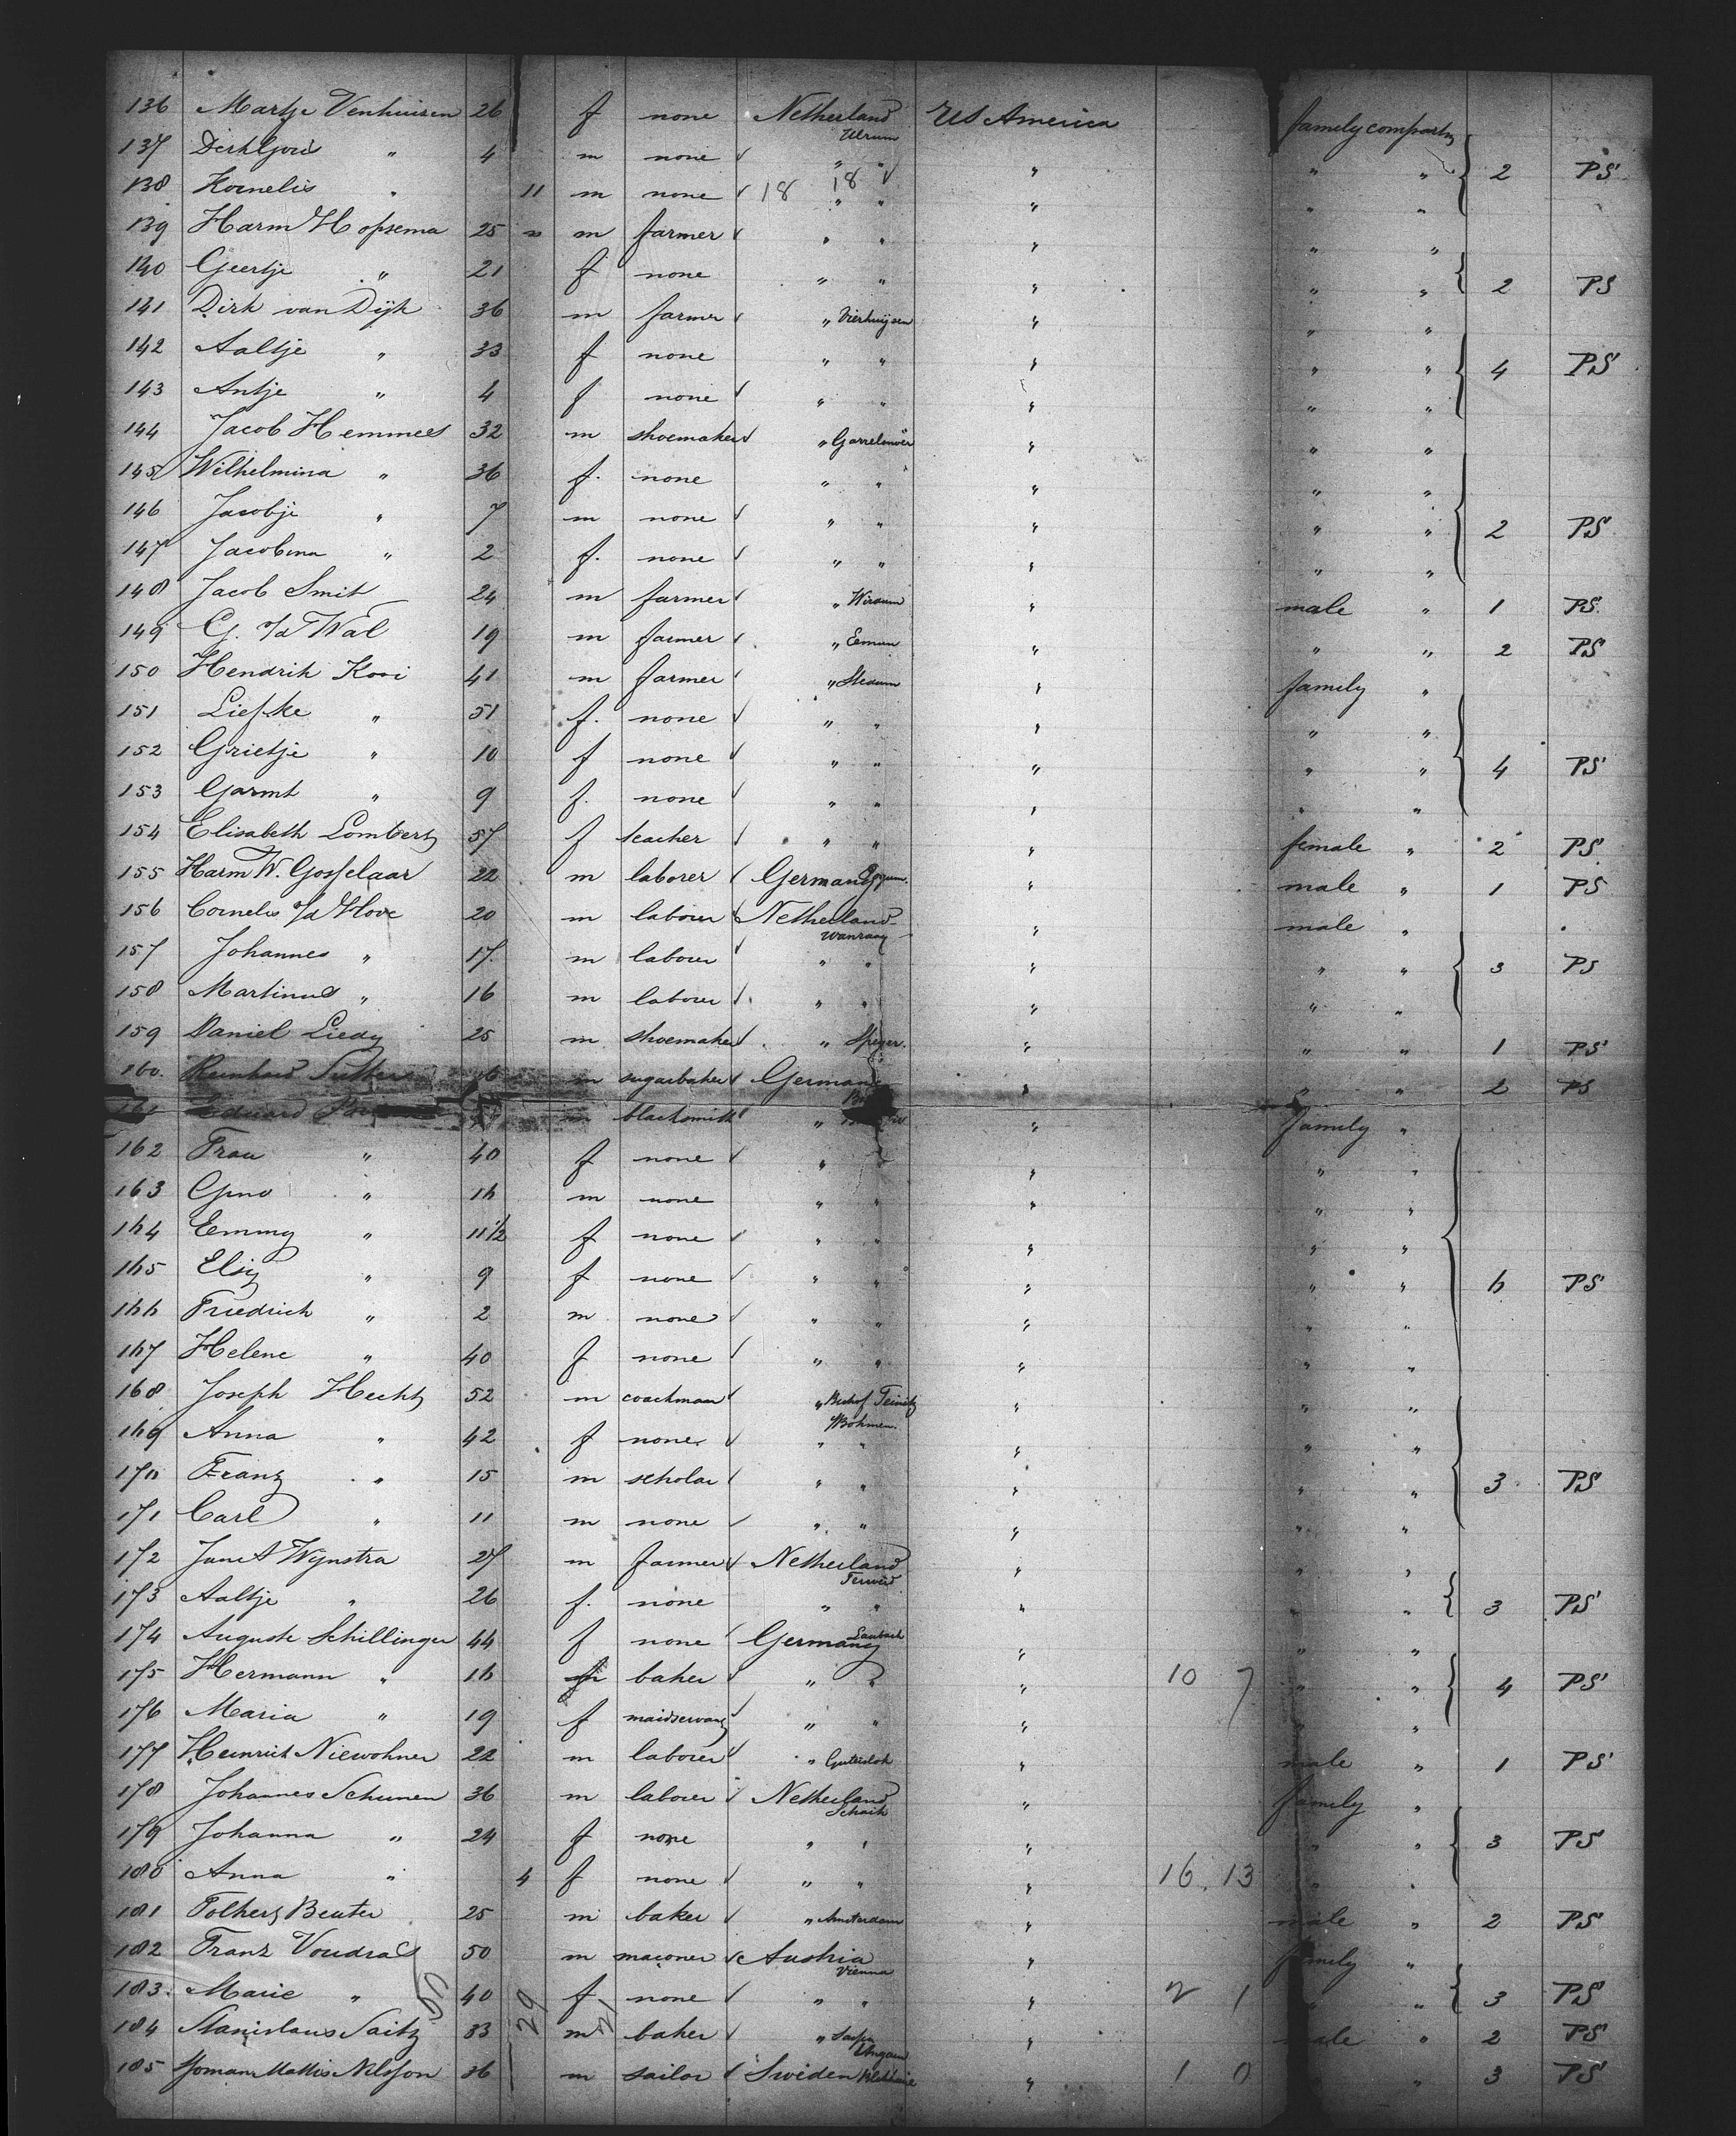 136 Martje Venhuisen 26 f none Netherland Ulrum US America family compartm
137 " 4 m none " " " " " 2 PS
138 Kornelis " 11 m none 18 18 " " " " "
139 Harm Hopsema 25 m farmer " " " " "
140 Geertje " 21 f none " " " " " 2 PS
141 Dirk van Dijk 36 m farmer " Vierhuijsen " " "
142 Aaltje " 33 f none " " " " " 4 PS
143 Antje " 4 f none " " " " "
144 Jacob Hemmes 32 m shoemaker " " " "
145 Wilhelmina " 36 f. none " " " " "
146 Jacobje " 7 m none " " " " " 2 PS
147 Jacobina " 2 f. none " " " " "
148 Jacob Smit 24 m farmer " Wirdum " male " 1 PS.
149 G. v/d Wal 19 m farmer " " " " 2 PS
150 Hendrik Kooi 41 m farmer " Stedum " family "
151 Liefke " 51 f. none " " " " "
152 Grietje " 10 f none " " " " " 4 PS
153 Garmt " 9 f. none " " " " "
154 Elisabeth Lombertz 57 f teacher " " " female " 2 PS
155 Harm W. Gosselaar 22 m laborer Germany " male " 1 PS
156 Cornelis v/d Hove 20 m laborer Netherland Wanraay " male "
157 Johannes " 17. m laborer " " " " " 3 PS
158 Martinus " 16 m laborer " " " " "
159 Daniel Liedy 25 m shoemaker " Speyer. " " " 1 PS
160. m sugarbaker Germany " " " 2 PS
161 Eduard m blacksmith " " family "
162 Frau " 40 f none " " " "
163 " 16 m none " " " " "
164 Emmy " 11 1/2 f none " " " " "
165 Elsy " 9 f none " " " " " 6 PS
166 Friedrich " 2 m none " " " " "
167 Helene " 40 f none " " " " "
168 Joseph Hecht 52 m coachman " Bischof Teinitz Böhmen. " " "
169 Anna " 42 f none " " " " "
170 Franz " 15 m scholar " " " " " 3 PS
171 Carl " 11 m none " " " " "
172 Jan A Wijnstra 27 m farmer Netherland Ferwerd " " "
173 Aaltje " 26 f. none " " " " " 3 PS
174 Auguste Schillinger 44 f none Germany Laubach " " "
175 Hermann " 16 m baker " " " 10 7 " " 4 PS
176 Maria " 19 f maidservant " " " " "
177 Heinrich Niewohner 22 m laborer " Gutersloh " male " 1 PS
178 Johannes Schunen 36 m laborer Netherland Schaik " family "
179 Johanna " 24 f none " " " " " 3 PS
180 Anna " 4 f none " " " 16. 13 " "
181 Folkerz Beuter 25 m baker " Amsterdam " male " 2 PS
182 Franz Voudras 50 m maconer Austria Vienna " family "
183. Marie " 40 f none " " " 2 1 " " 3 PS
184 Stanislaus Saitz 33 m baker " Ungarn " male " 2 PS
29 21
185 Mattis Nilsson 36 m sailor Sweden " 1 0 " 3 PS